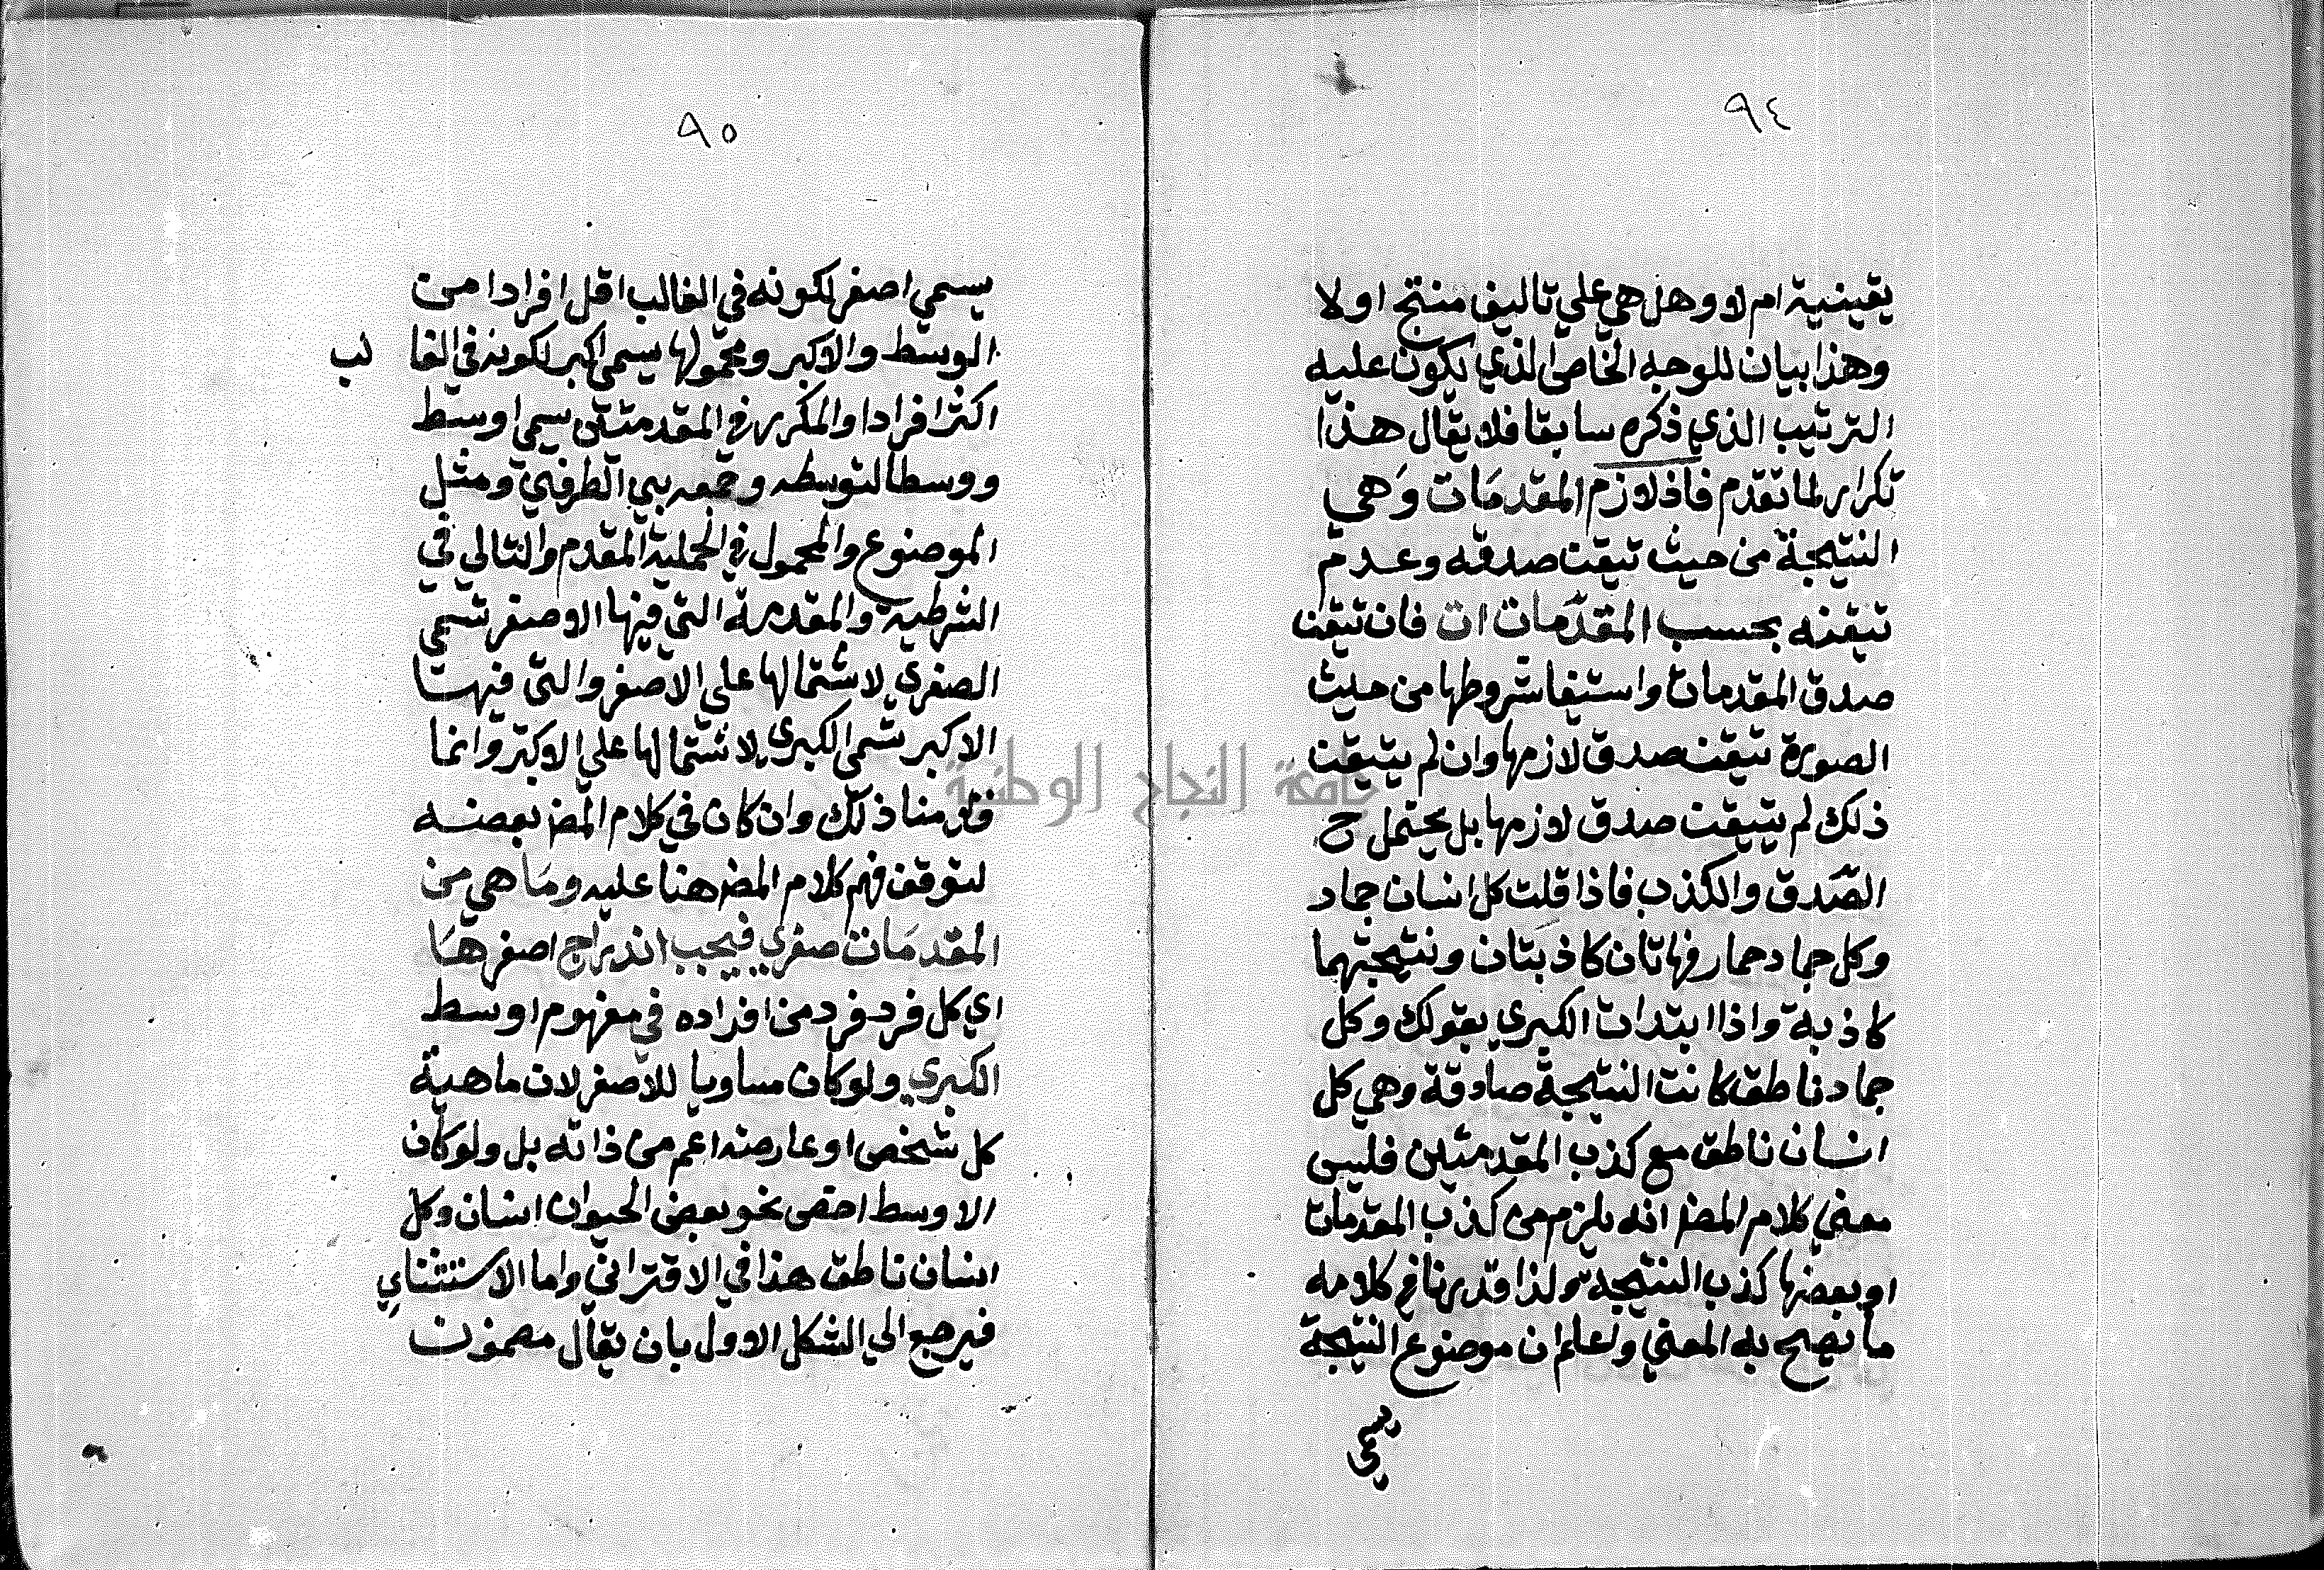 ٩٤
يقينية ام لا وهل هي علي تاليف منتج اولا
وهذا بيان للوجه الخاص الذي يكون عليه
الترتيب الذي ذكره سابقا فلا يقال هذا
تكرار لما تقدم فان لازم المقدمات وهي
النتيجة من حيث تيقن صدقه وعدم
تيقنه بحسب المقدمات ات فان تيقن
صدق المقدمات واستيفا شروطها من حيث
الصورة تيقن صدق لازمها وان لم يتيقن
ذلك لم يتيقن صدق لازمها بل يحتمل ح
الصدق والكذب فاذا قلت كل انسان جماد
وكل جماد حمار فهاتان كاذبتان ونتيجتهما
كاذبة واذا ابتدات الكبري بقولك وكل
جماد ناطق كانت النتيجة صادقة وهي كل
انسان ناطق مع كذب المقدمتين فليس
معني كلام المصـ انه يلزم من كذب المقدمات
او بعضها كذب النتيجة ولذا قدرنا في كلامه
ما يصح به المعني ولعلم ان موضوع النتيجة
يسمي
٩٥
يسمي اصغر لكونه في الغالب اقل افرادا من
الوسط والاكبر ومحمولها يسمي اكبر لكونه في الغا لب
اكثر افرادا والمكرر في المقدمتين يسمي اوسط
ووسطا لتوسطه وجمعه بين الطرفين ومثل
الموضوع والمحمول في الحملية المقدم والتالي في
الشرطية والمقدمة التي فيها الاصغر تسمي
الصغري لاشتمالها علي الاصغر والتي فيها
الاكبر تسمي الكبري لاشتمالها علي الاكبر وانما
قدمنا ذلك وان كان في كلام المصـ بعضه
لتوقف فهم كلام المصـ هنا عليه وما هي من
المقدمات صغري فيجب اندراج اصغرها
اي كل فرد فرد من افراده في مفهوم اوسط
الكبري ولو كان مساويا للاصغر لان ماهية
كل شخص او عارضه اعم من ذاته بل ولو كان
الاوسط اخص نحو بعض الحيوان انسان وكل
انسان ناطق هذا في الاقتراني واما الاستثناي
فيرجع الي الشكل الاول بان يقال مضمون
جامعة النجاح الوطنية